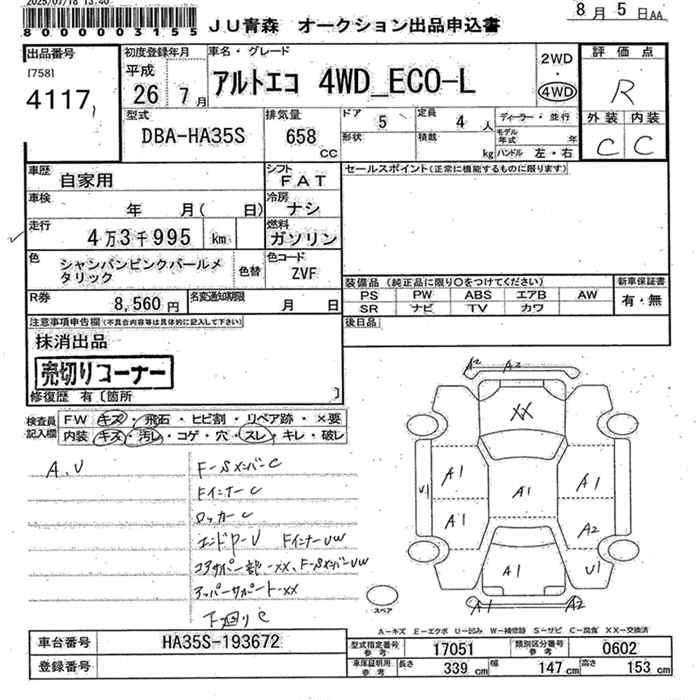 2025/07/18 13:40
8000003155
JU青森 オークション出品申込書
8月5日AA
出品番号
[758]
4117
初度登録年月
平成
26年7月
車名・グレード
アルトエコ 4WD_ECO-L
2WD
・
4WD
評価点
R
外装 内装
C C
型式
DBA-HA35S
排気量
658
cc
ドア
5
形状
定員
4人
積載
kg
ディーラー・並行
モデル年式 年
ハンドル 左・右
車歴
自家用
シフト
FAT
車検
年 月( 日)
冷房
ナシ
走行
4万3千995 km
燃料
ガソリン
色
シャンパンピンクパールメタリック
色替
色コード
ZVF
R券
8,560円
名変通知期限
月 日
セールスポイント(正常に機能するものに限ります)
装備品 (純正品に限り○をつけてください)
PS PW ABS エアB AW
SR ナビ TV カワ
新車保証書
有・無
後日品
注意事項申告欄(不具合内容等は具体的に記入して下さい)
抹消出品
売切りコーナー
修復歴 有〔箇所 〕
検査員記入欄
FW キズ・飛石・ヒビ割・リペア跡・×要
内装 キズ・汚レ・コゲ・穴・スレ・キレ・破レ
A、U
F-SメンバーC
FインナーC
ロッカーC
エンドP-U FインナーUW
コアサポート部-XX、F-SメンバーUW
アッパーサポート-XX
下廻りC
A2 A2
XX
A1 A1 A1
U1
A1 A2
A1 U1
A1 A2
スペア
A-キズ E-エクボ U-凹み W-補修跡 S-サビ C-腐食 XX-交換済
車台番号
HA35S-193672
登録番号
型式指定番号参考
17051
類別区分番号参考
0602
車庫証明用参考
長さ 339cm
幅 147cm
高さ 153cm